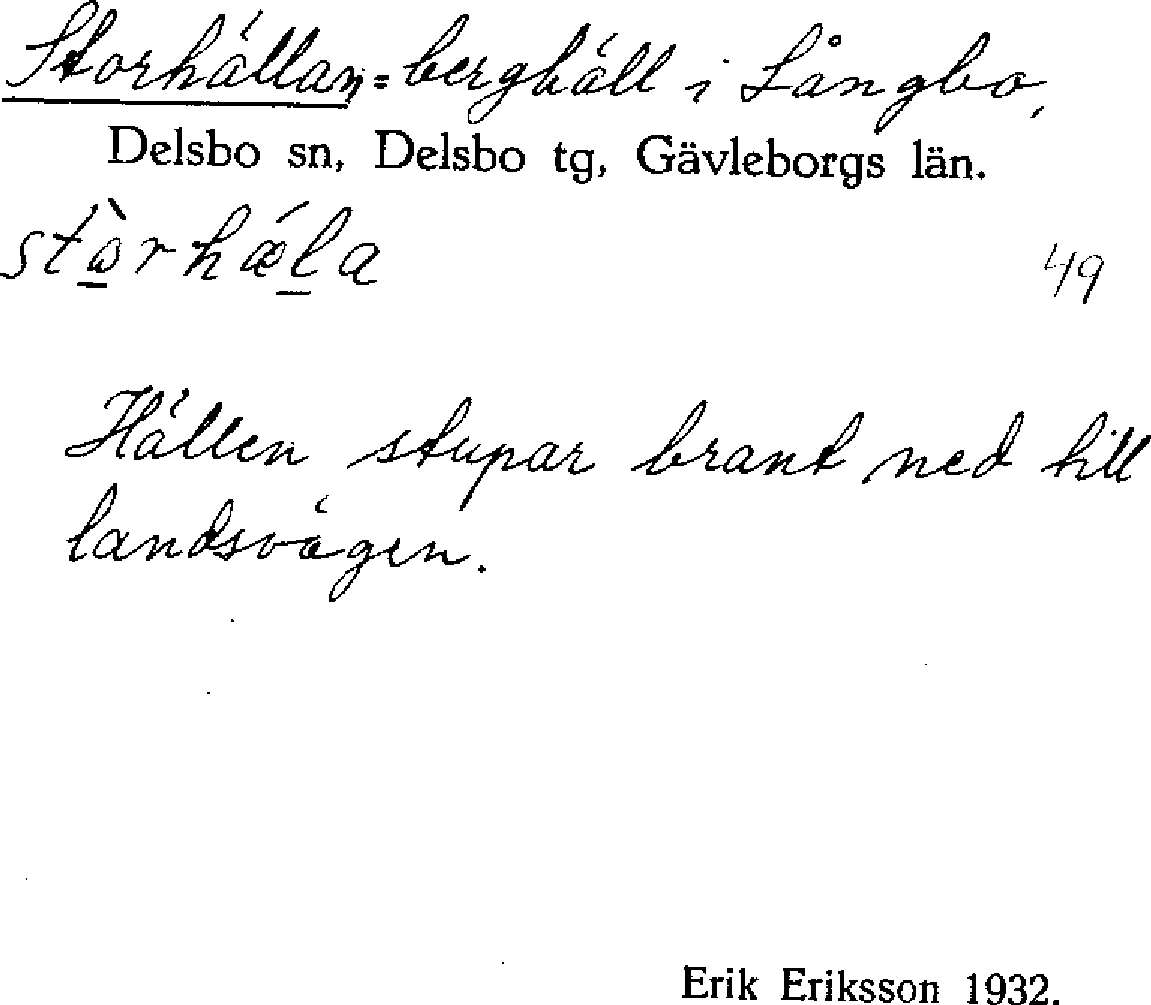 Storhällan = berghäll i Långbo,
Delsbo sn, Delsbo tg, Gävleborgs län.
stɷ̀rhǽla 49
Hällen stupar brant ned till
landsvägen.
Erik Eriksson 1932.